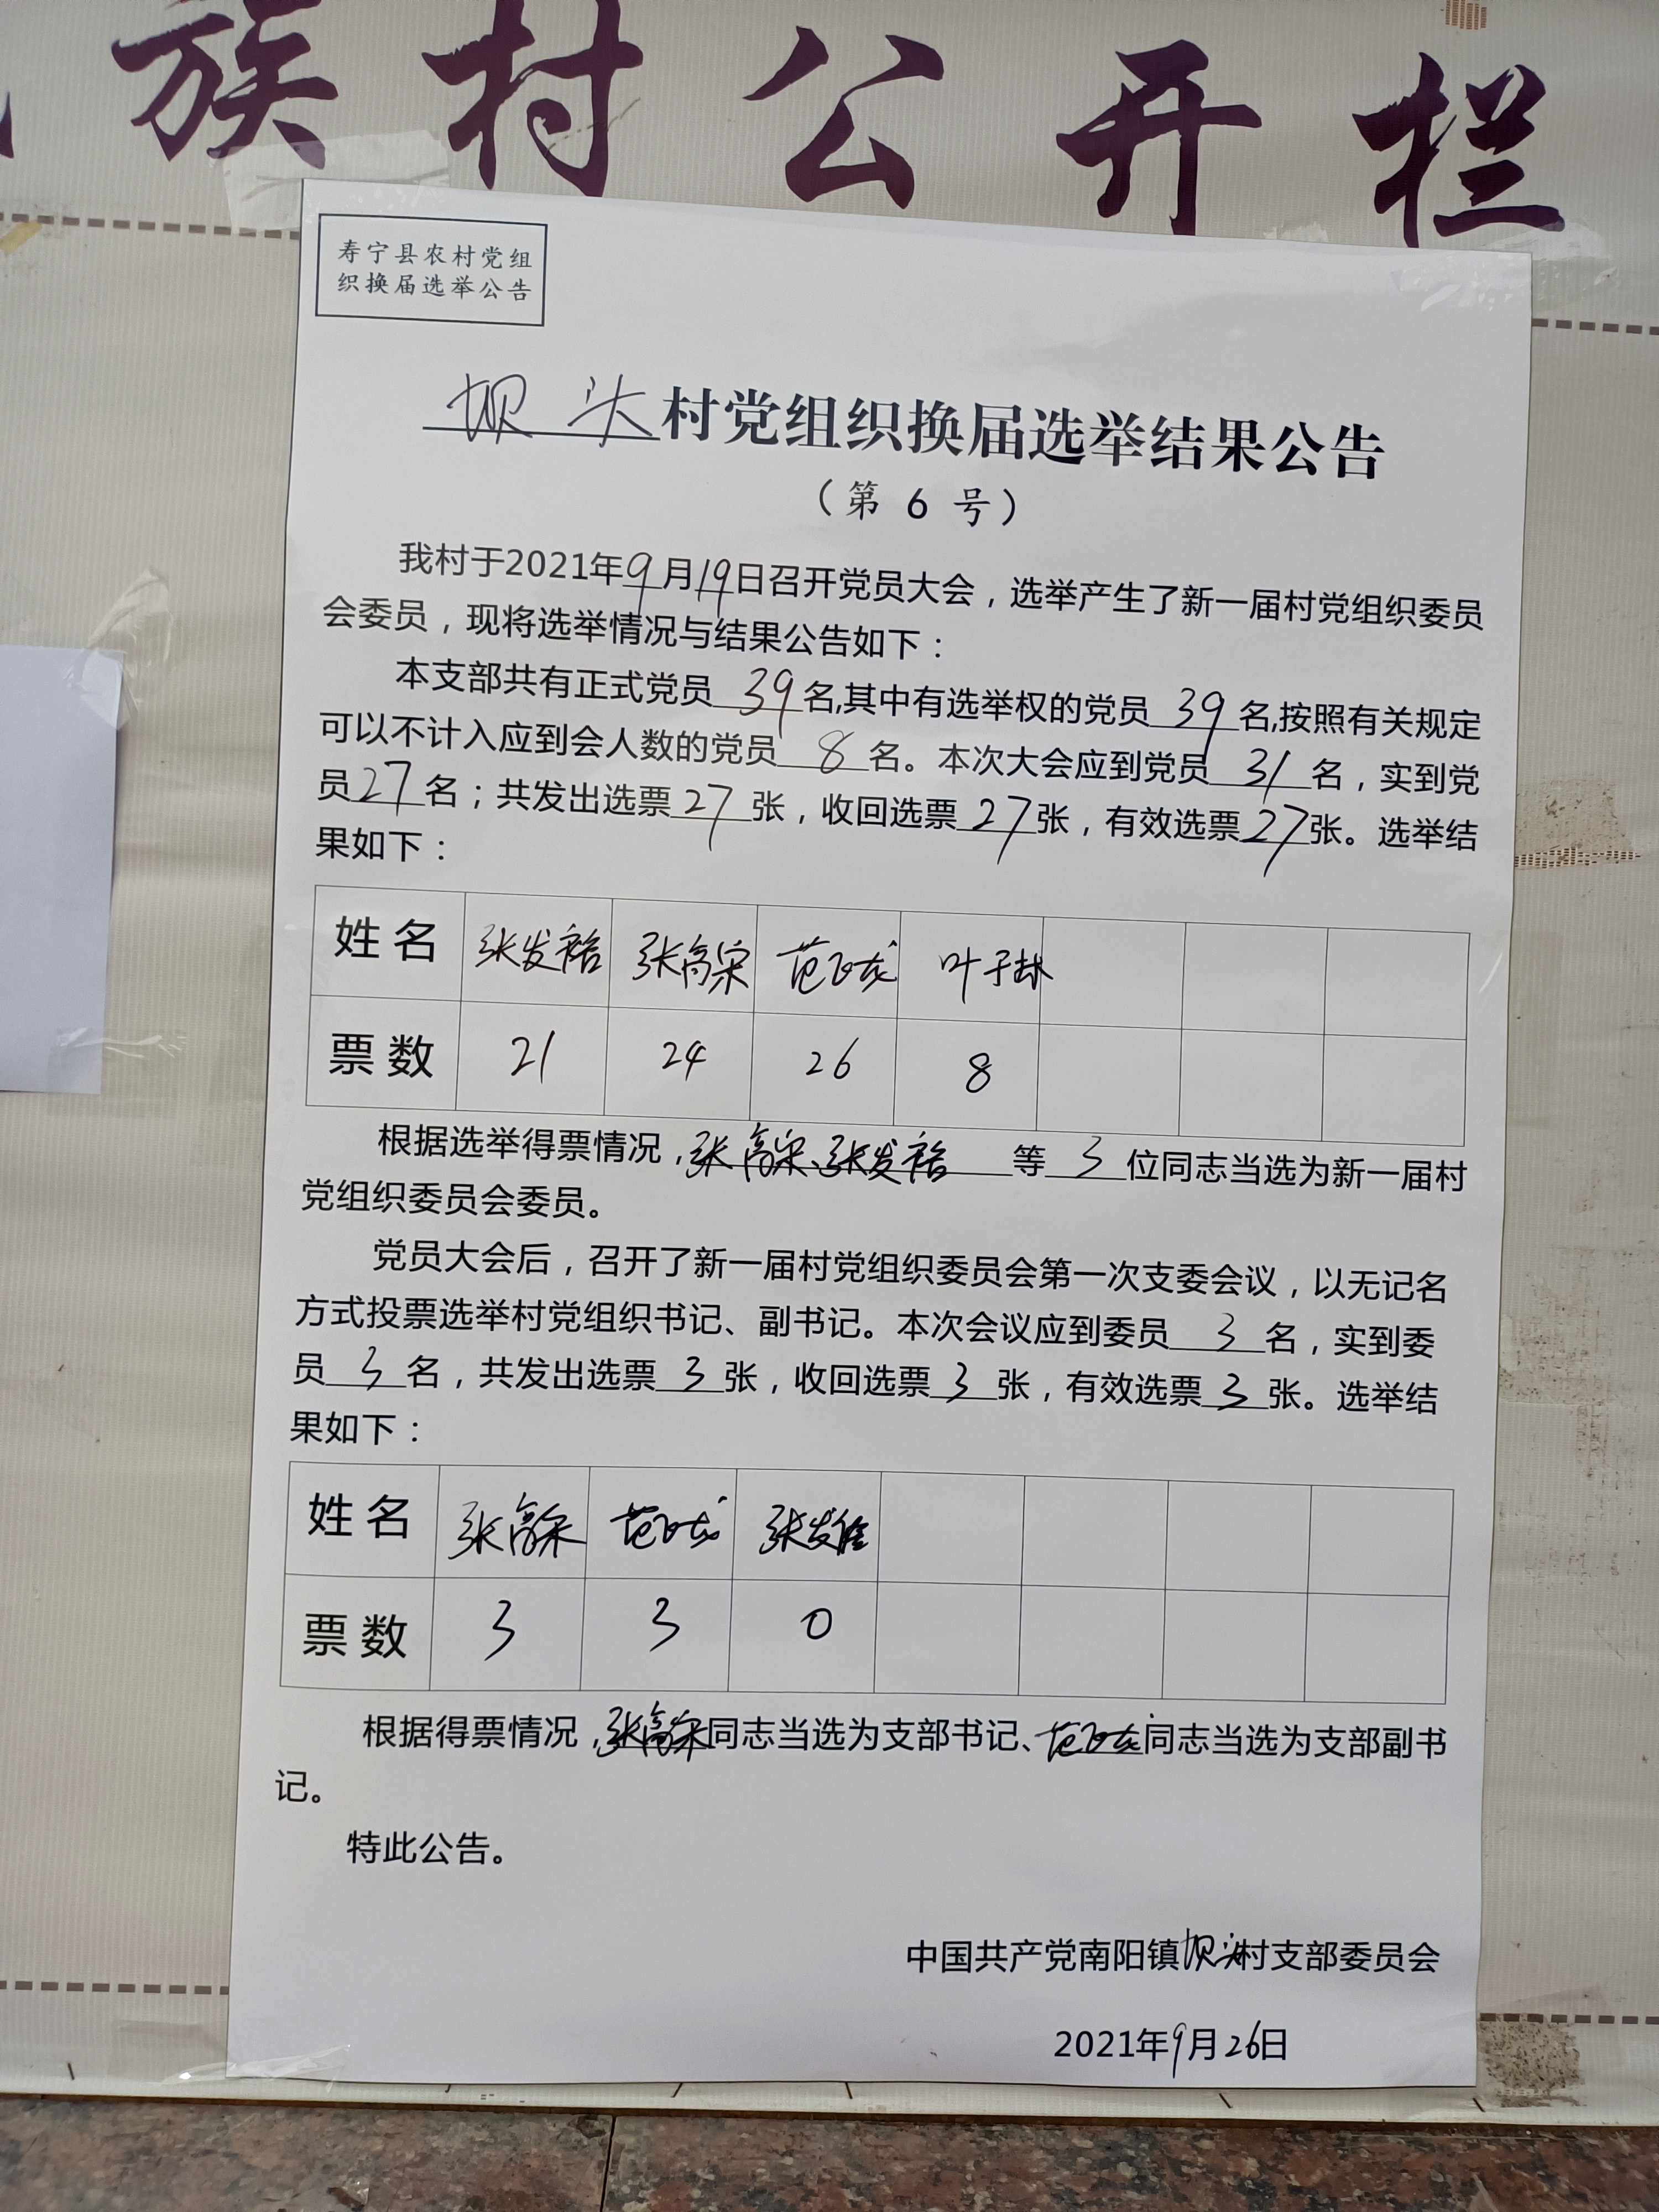 族村公开栏
寿宁县农村党组
织换届选举公告
坝头村党组织换届选举结果公告
（第 6 号）
我村于2021年9月19日召开党员大会，选举产生了新一届村党组织委员
会委员，现将选举情况与结果公告如下：
本支部共有正式党员39名,其中有选举权的党员39名,按照有关规定
可以不计入应到会人数的党员8名。本次大会应到党员31名，实到党
员27名；共发出选票27张，收回选票27张，有效选票27张。选举结
果如下：
姓名 张发裕 张高宋 范飞龙 叶于
票数 21 24 26 8
根据选举得票情况，张高宋、张发裕等3位同志当选为新一届村
党组织委员会委员。
党员大会后，召开了新一届村党组织委员会第一次支委会议，以无记名
方式投票选举村党组织书记、副书记。本次会议应到委员3名，实到委
员3名，共发出选票3张，收回选票3张，有效选票3张。选举结
果如下：
姓名 张高宋 范飞龙 张发裕
票数 3 3 0
根据得票情况，张高宋同志当选为支部书记、范飞龙同志当选为支部副书
记。
特此公告。
中国共产党南阳镇坝头村支部委员会
2021年9月26日